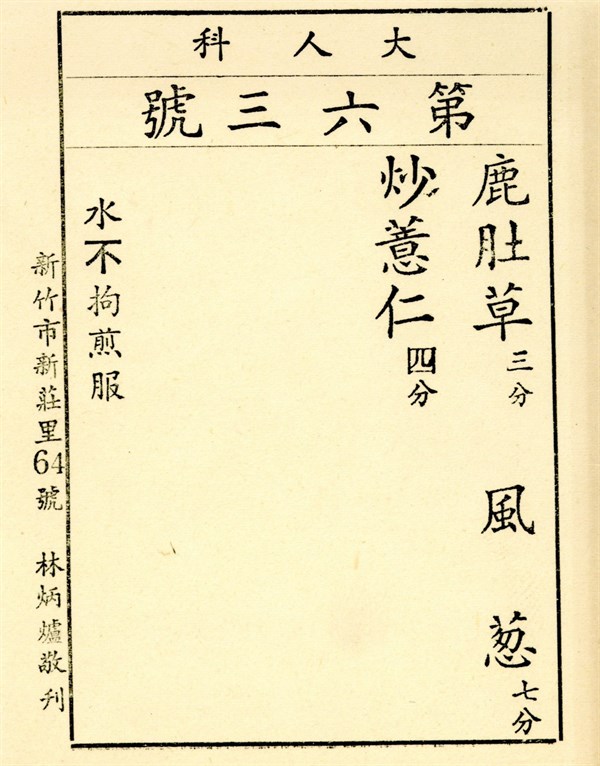 大人科
第六三號
鹿肚草三分　風葱七分
炒薏仁四分
水不拘煎服
新竹市新莊里64號　林炳爐敬刋